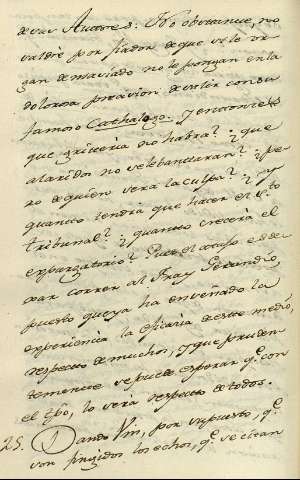 de sus Autores: No obstante, no
saldré por fiador de que si lo ur-
gan demasiado no lo pongan en la
dolorosa precision de salir con su
famoso Cathalogo. Y entonces
que griteria no habra? y que
alaridos no se lebantaran? pe-
ro de quien sera la culpa? y
quanto tendrá que hacer el s.to
tribunal? y quanto crecerá el
expurgatorio? Pues el atajo es de-
xar correr al Fray Gerundio,
puesto que ya ha enseñado la
experiencia la eficacia de este medio,
respecto de muchos, y que pruden
temente se puede esperar q.e con
el tpo, lo será respecto de todos.
25. Dando Vm, por supuesto, q.e
son fingidos los echos, q.e se citan